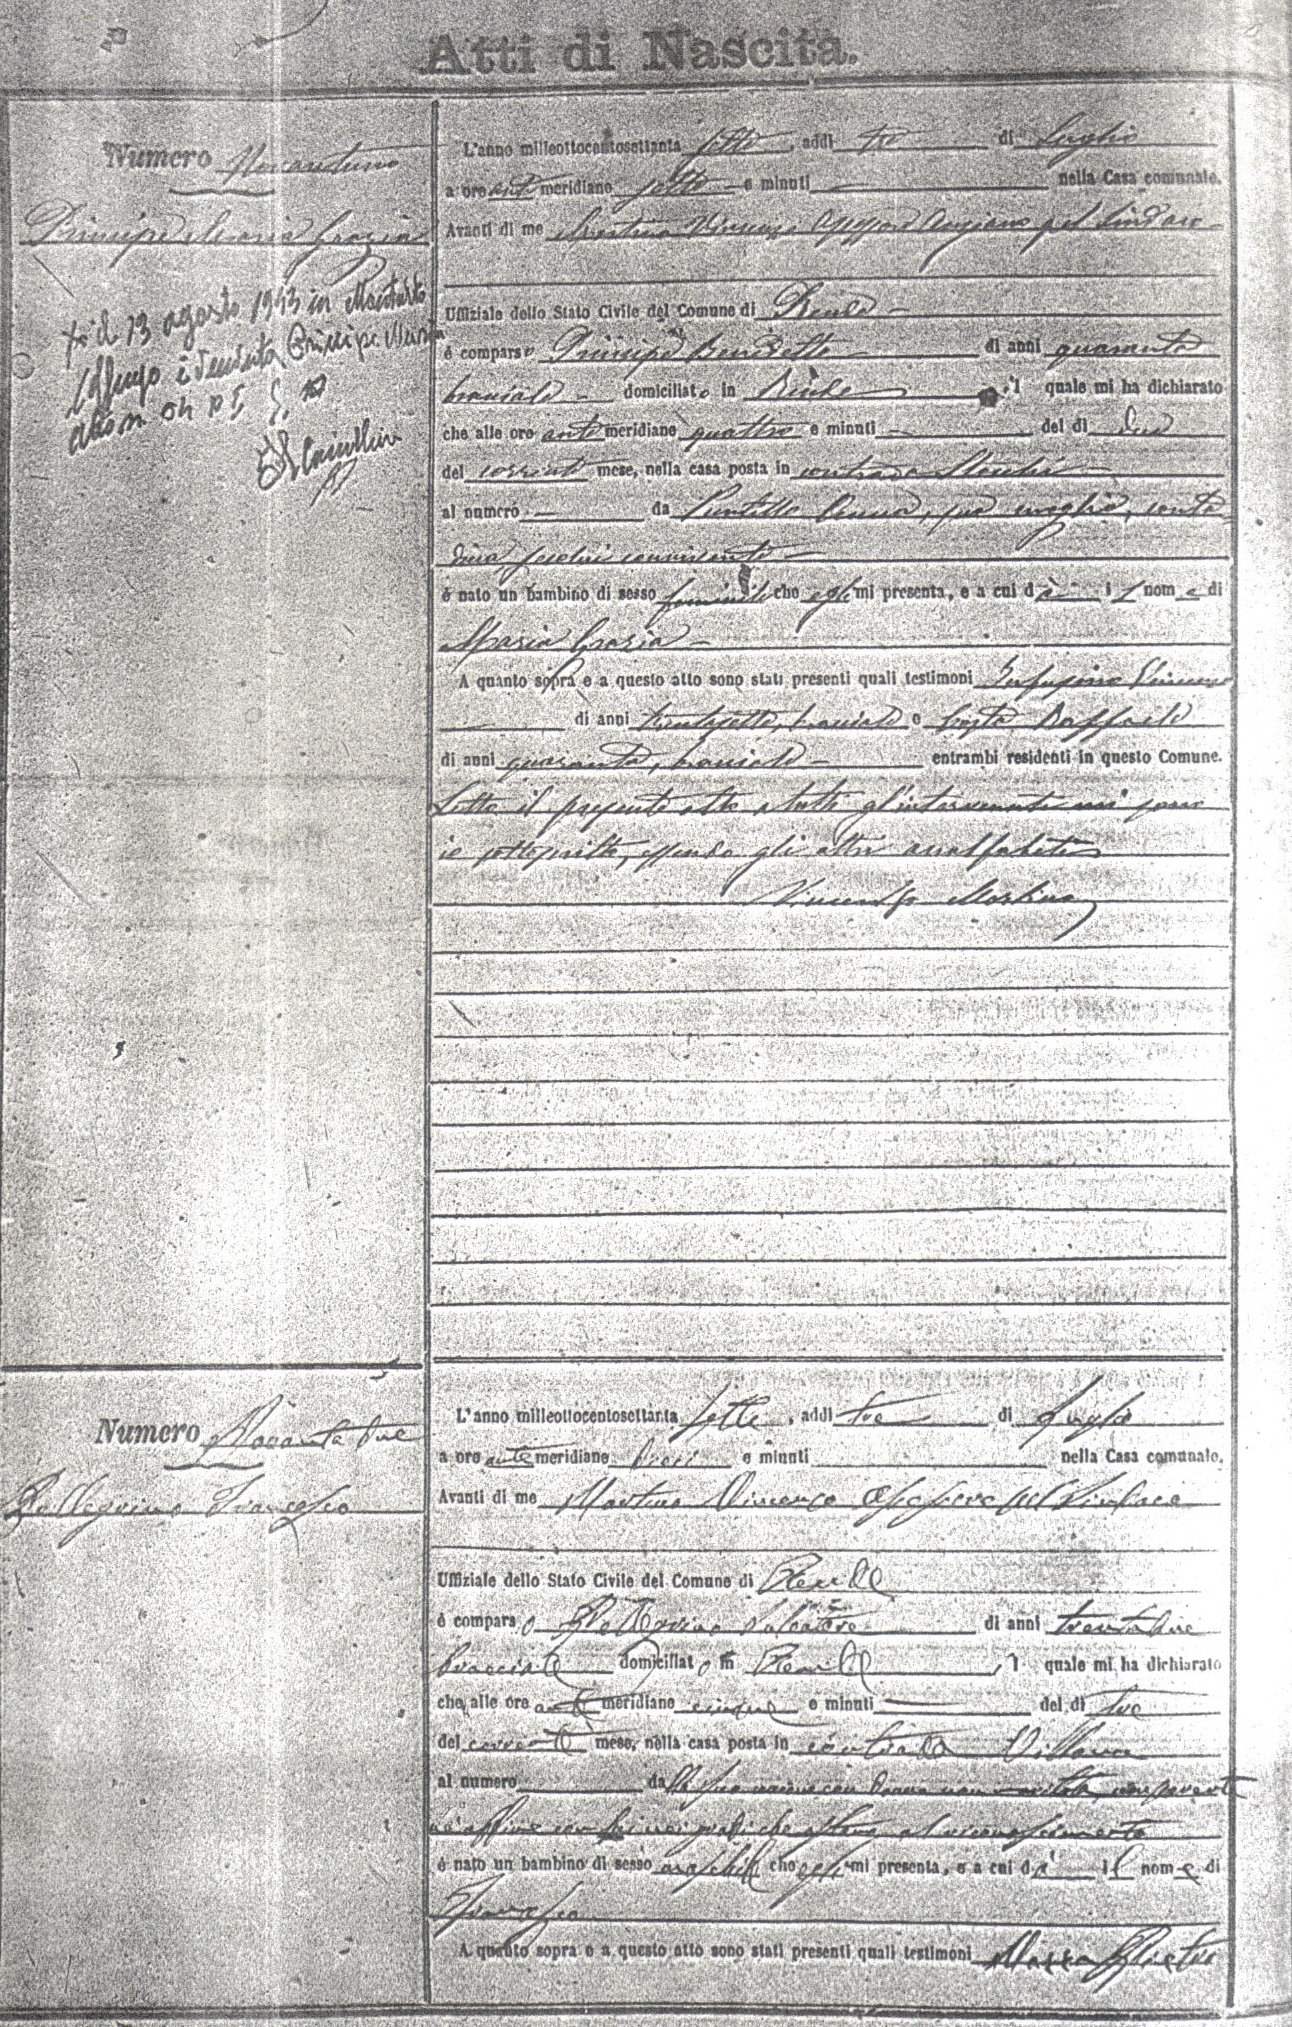 Atti di Nascita.
Numero Novantuno
Principe Maria Grazia
il 13 agosto 1943 in
è Principe Maria
L'anno milleottocentosettanta sette, addi tre di Luglio
a ore ante meridiane sette e minuti nella Casa comunale.
Avanti di me Martino Vincenzo Assessore Anziano pel Sindaco
Uffiziale dello Stato Civile del Comune di Rende
è comparso Principe Benedetto di anni quaranta
bracciale domiciliato in Rende, il quale mi ha dichiarato
che alle ore ante meridiane quattro e minuti del dì due
del corrente mese, nella casa posta in contrada
al numero da Anna, sua moglie, conta
dina seco lui convivente
è nato un bambino di sesso femminile che egli mi presenta, e a cui dà il nome di
Maria Grazia
A quanto sopra e a questo atto sono stati presenti quali testimoni
di anni trentasette, bracciale e Raffaele
di anni quaranta, bracciale entrambi residenti in questo Comune.
Letto il presente atto a tutti gl'intervenuti mi sono
io sottoscritto, essendo gli altri analfabeti
Vincenzo Martino
Numero Novantadue
Pellegrino Francesco
L'anno milleottocentosettanta sette, addi tre di Luglio
a ore ante meridiane dieci e minuti nella Casa comunale.
Avanti di me Martino Vincenzo Assessore pel Sindaco
Uffiziale dello Stato Civile del Comune di Rende
è comparso Pellegrino Salvatore di anni trentadue
bracciale domiciliato in Rende, il quale mi ha dichiarato
che alle ore ante meridiane cinque e minuti del dì tre
del corrente mese, nella casa posta in contrada Villana
al numero dalla sua unione con donna non maritata, non parente
nè affine con lui nei gradi che ostano al riconoscimento
è nato un bambino di sesso maschile che egli mi presenta, e a cui dà il nome di
Francesco
A quanto sopra e a questo atto sono stati presenti quali testimoni